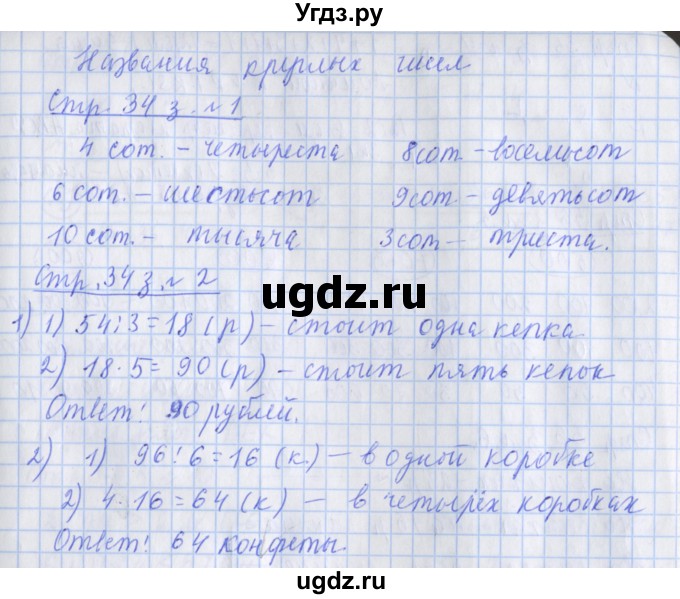 Угдз.ру
Названия круглых чисел
Стр. 34 з. №1
4 сот. – четыреста 8 сот. – восемьсот
6 сот. – шестьсот 9 сот. – девятьсот
10 сот. – тысяча 3 сот – триста.
Стр. 34 з. №2
1) 1) 54:3=18 (р) – стоит одна кепка
2) 18·5=90 (р) – стоит пять кепок
Ответ: 90 рублей.
2) 1) 96:6=16 (к.) – в одной коробке
2) 4·16=64 (к) – в четырёх коробках
Ответ: 64 конфеты
ugdz.ru
ugdz.ru